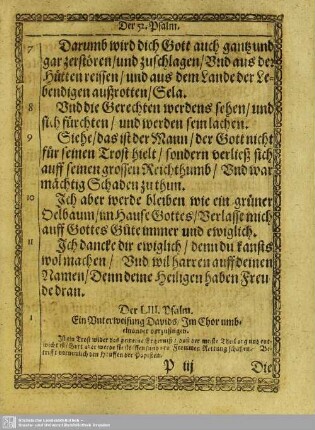 Der 52. Psalm.
7 Darumb wird dich Gott auch gantz und
gar zerstören/ und zuschlagen/ Vnd aus der
Hütten reissen/ und aus dem Lande der Le-
bendigen außrotten/ Sela.
8 Vnd die Gerechten werdens sehen/ und
sich fürchten/ und werden sein lachen.
9 Siehe/ das ist der Mann/ der Gott nicht
für seinen Trost hielt/ sondern verließ sich
auff seinen grossen Reichthumb/ Vnd war
mächtig Schaden zu thun.
10 Ich aber werde bleiben wie ein grüner
Oelbaum/ im Hause Gottes/ Verlasse mich
auff Gottes Güte immer und ewiglich.
11 Ich dancke dir ewiglich/ denn du kansts
wol machen/ Vnd wil harren auff deinen
Namen/ Denn deine Heiligen haben Freu-
de dran.
Der LIII. Psalm.
1 Ein Vnterweisung Davids/ Im Chor umb-
einander vorzusingen.
Trost wider das gemeine
P iij Die